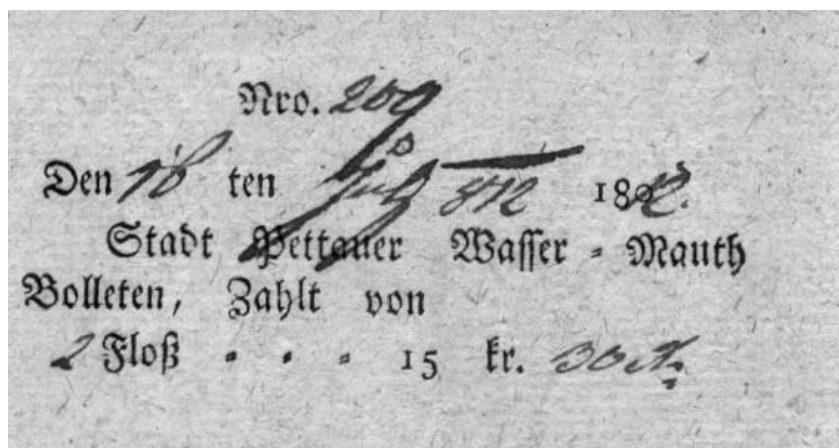 Nro. 209
Den 18 ten July 812 1812.
Stadt Pettauer Wasser = Mauth
Bolleten, Zahlt von
2 Floß = = = 15 kr. 30 kr.